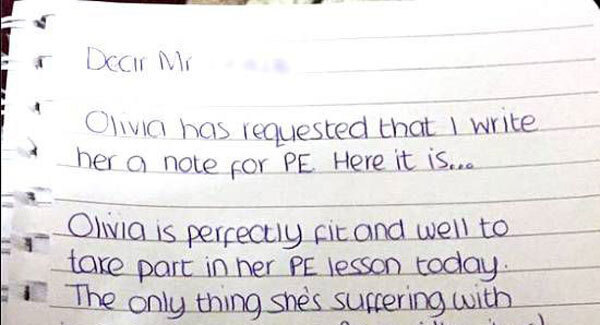 Dear Mr
Olivia has requested that I write
her a note for PE. Here it is...
Olivia is perfectly fit and well to
take part in her PE lesson today.
The only thing she's suffering with